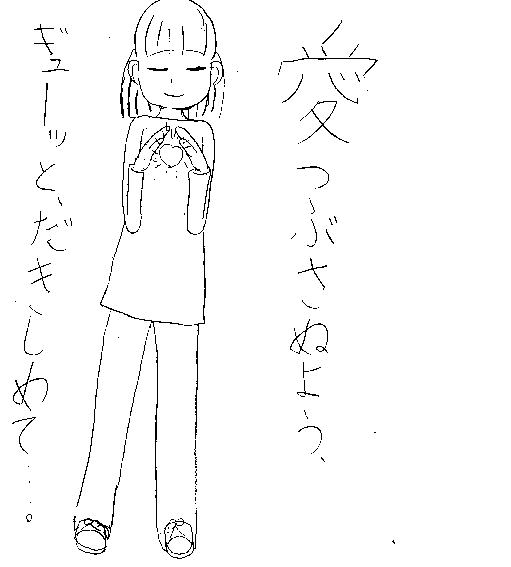 愛つぶさぬよう、
ギューッと、だきしめて…。